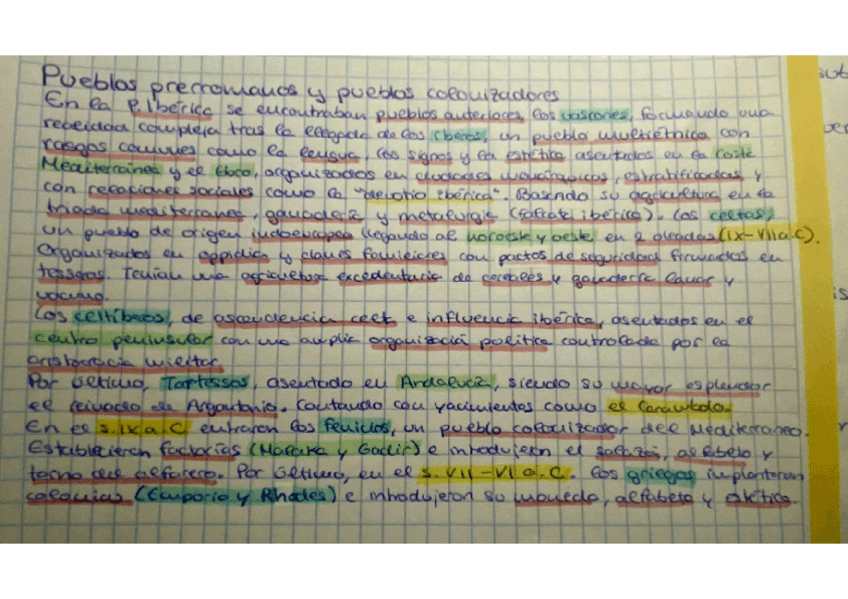 Pueblos prerromanos y pueblos colonizadores
En la P. Ibérica se encontraban pueblos anteriores, los vascones, formando una
realidad compleja tras la llegada de los íberos, un pueblo multiétnico con
rasgos comunes como la lengua, los signos y la estética, asentados en la Costa
Mediterránea y el Ebro, organizados en ciudades monárquicas, estratificadas y
con relaciones sociales como la "devotio ibérica". Basando su agricultura en la
triada mediterránea, ganadería y metalurgia (falcata ibérica). Los celtas,
un pueblo de origen indoeuropeo llegando al noroeste y oeste en 2 oleadas (IX-VII a.C).
Organizados en oppidios y clanes familiares con pactos de seguridad firmados en
tesseras. Tenían una agricultura excedentaria de cereales y ganadería lanar y
vacuno.
Los celtíberos, de ascendencia celta e influencia ibérica, asentados en el
centro peninsular con una amplia organización política controlada por la
aristocracia militar.
Por último, Tartessos, asentado en Andalucía, siendo su mayor esplendor
el reinado de Argantonio. Contando con yacimientos como el Carambolo.
En el s. IX a.C entraron los fenicios, un pueblo colonizador del Mediterráneo.
Establecieron factorías (Malaka y Gadir) e introdujeron el salazón, alfabeto y
torno del alfarero. Por último, en el s. VII-VI a.C. los griegos implantaron
colonias (Emporio y Rhodes) e introdujeron su moneda, alfabeto y